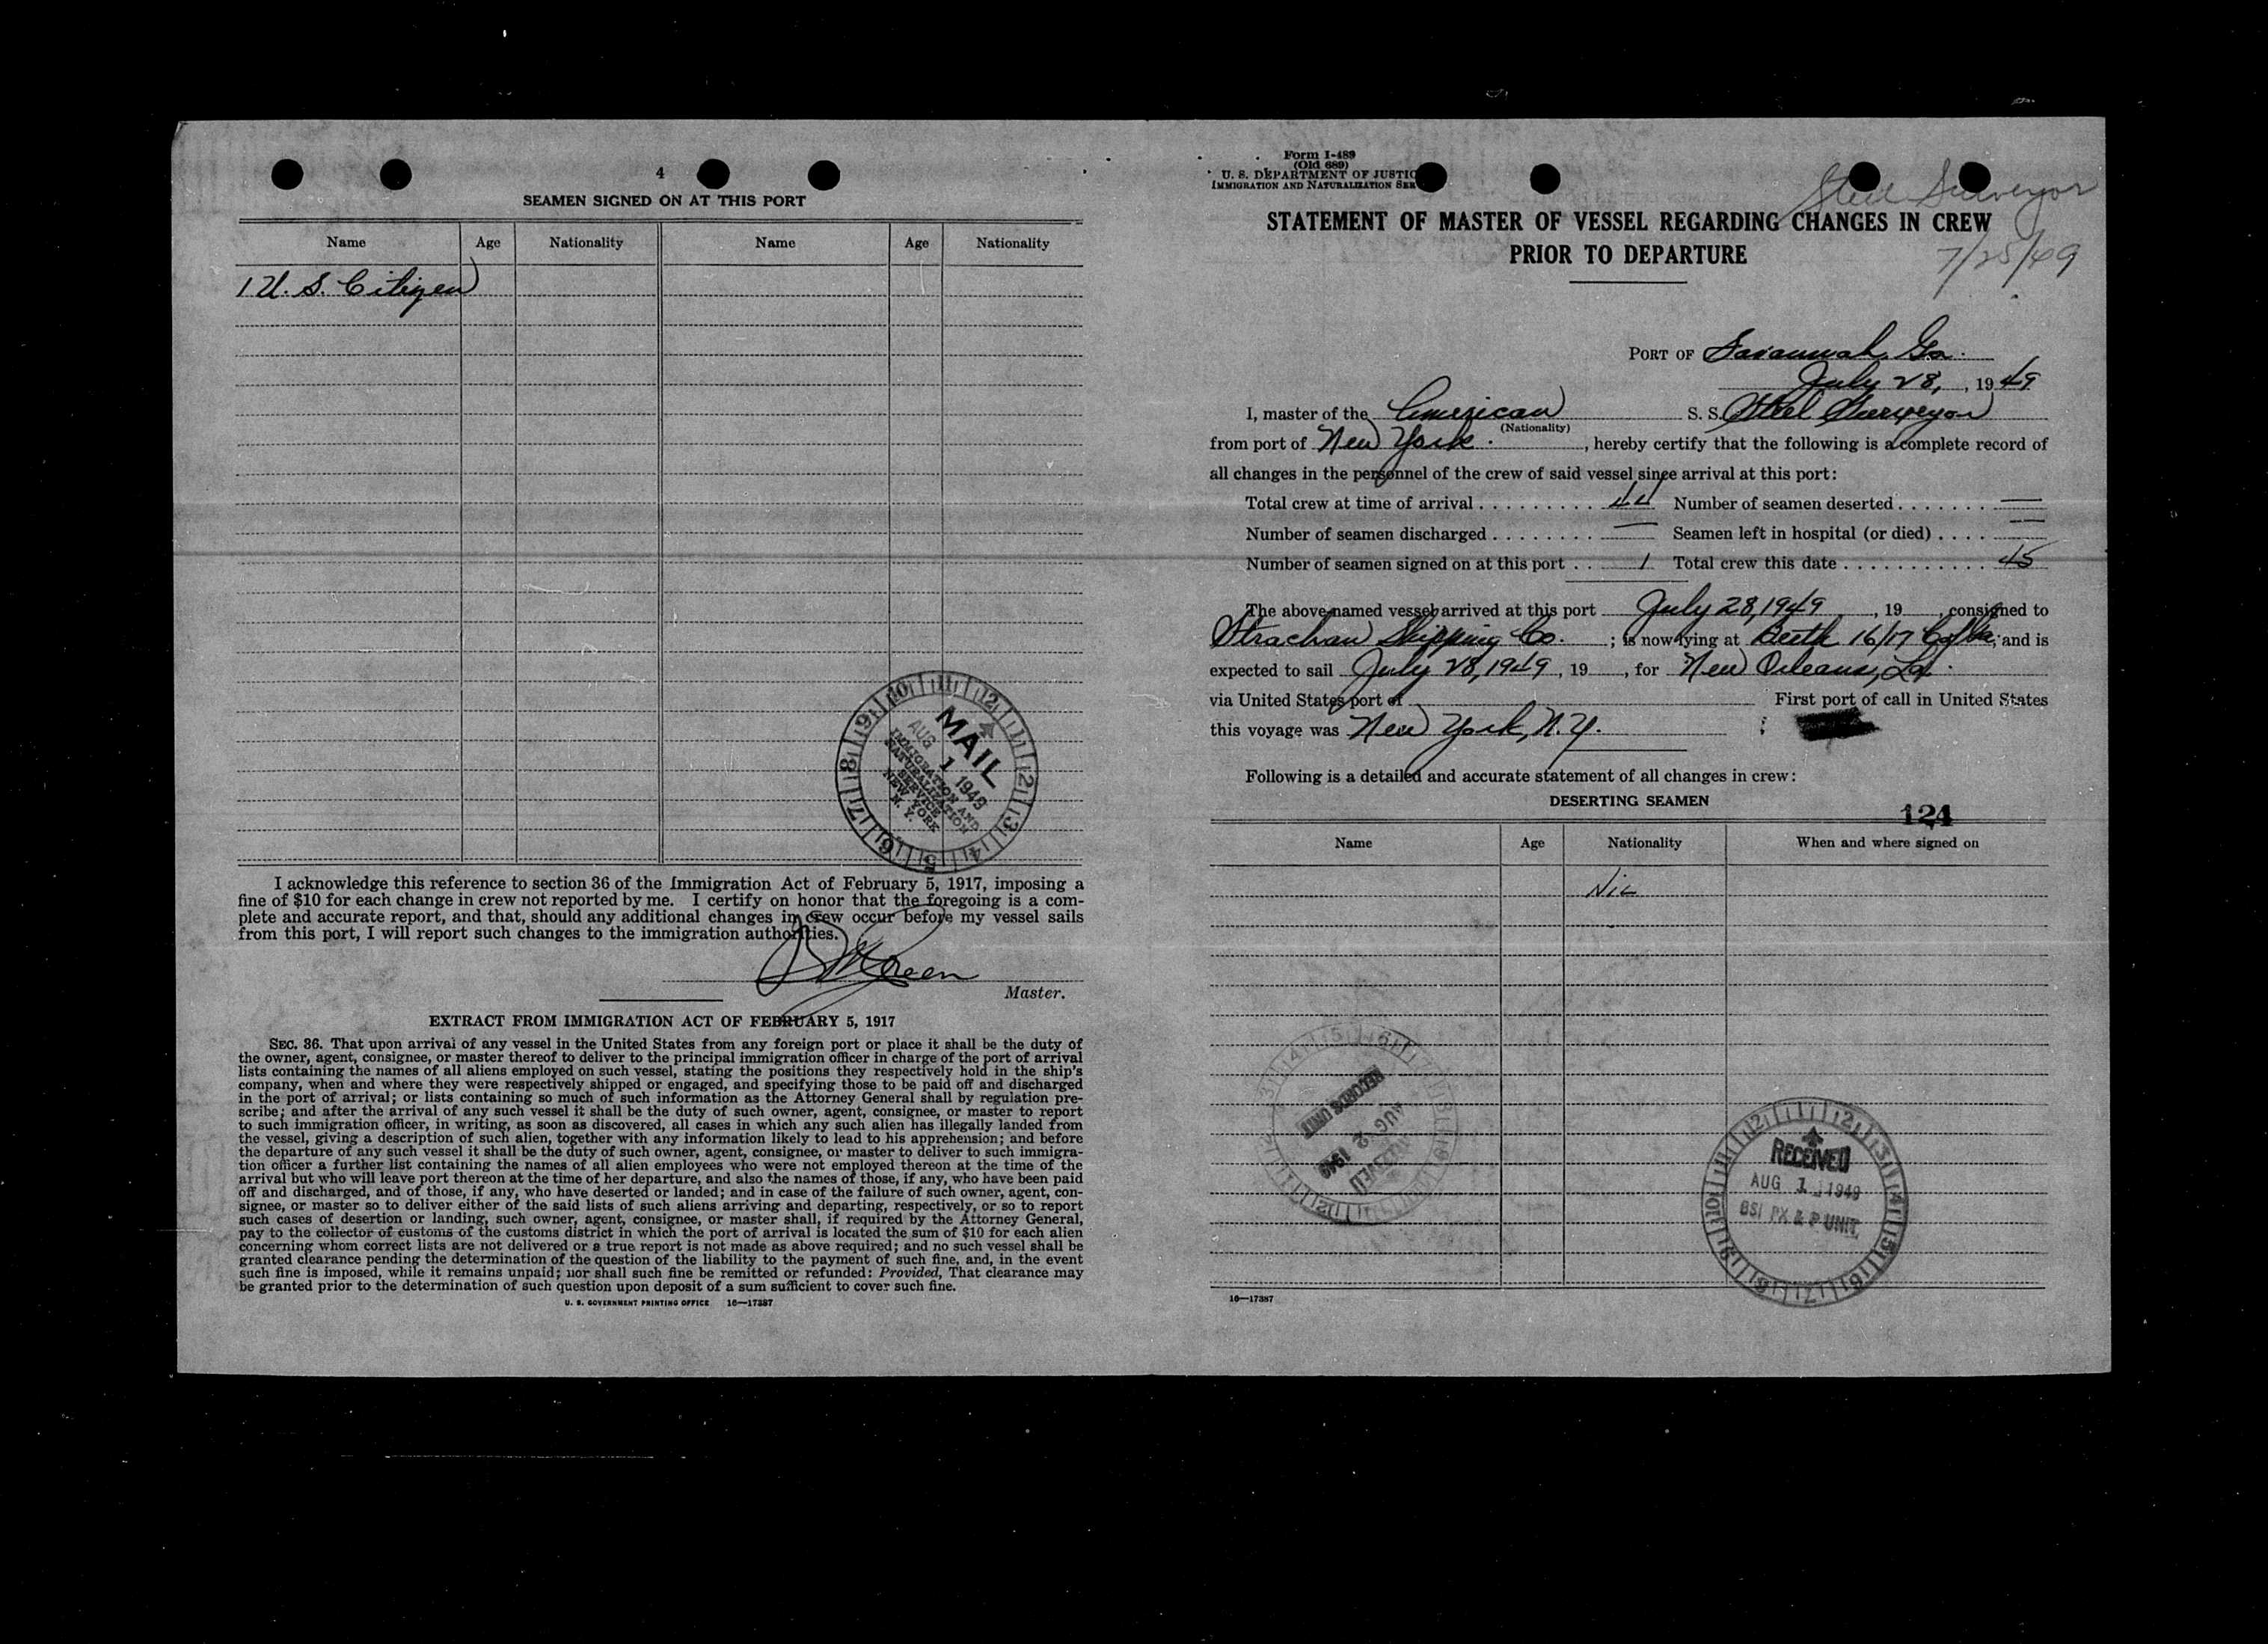 4
SEAMEN SIGNED ON AT THIS PORT
Name Age Nationality Name Age Nationality
1 U. S. Citizen
MAIL
AUG 1 1949
IMMIGRATION AND
NATURALIZATION
SERVICE
NEW YORK
N. Y.
I acknowledge this reference to section 36 of the Immigration Act of February 5, 1917, imposing a
fine of $10 for each change in crew not reported by me. I certify on honor that the foregoing is a com-
plete and accurate report, and that, should any additional changes in crew occur before my vessel sails
from this port, I will report such changes to the immigration authorities.
Master.
EXTRACT FROM IMMIGRATION ACT OF FEBRUARY 5, 1917
SEC. 36. That upon arrival of any vessel in the United States from any foreign port or place it shall be the duty of
the owner, agent, consignee, or master thereof to deliver to the principal immigration officer in charge of the port of arrival
lists containing the names of all aliens employed on such vessel, stating the positions they respectively hold in the ship's
company, when and where they were respectively shipped or engaged, and specifying those to be paid off and discharged
in the port of arrival; or lists containing so much of such information as the Attorney General shall by regulation pre-
scribe; and after the arrival of any such vessel it shall be the duty of such owner, agent, consignee, or master to report
to such immigration officer, in writing, as soon as discovered, all cases in which any such alien has illegally landed from
the vessel, giving a description of such alien, together with any information likely to lead to his apprehension; and before
the departure of any such vessel it shall be the duty of such owner, agent, consignee, or master to deliver to such immigra-
tion officer a further list containing the names of all alien employees who were not employed thereon at the time of the
arrival but who will leave port thereon at the time of her departure, and also the names of those, if any, who have been paid
off and discharged, and of those, if any, who have deserted or landed; and in case of the failure of such owner, agent, con-
signee, or master so to deliver either of the said lists of such aliens arriving and departing, respectively, or so to report
such cases of desertion or landing, such owner, agent, consignee, or master shall, if required by the Attorney General,
pay to the collector of customs of the customs district in which the port of arrival is located the sum of $10 for each alien
concerning whom correct lists are not delivered or a true report is not made as above required; and no such vessel shall be
granted clearance pending the determination of the question of the liability to the payment of such fine, and, in the event
such fine is imposed, while it remains unpaid; nor shall such fine be remitted or refunded: Provided, That clearance may
be granted prior to the determination of such question upon deposit of a sum sufficient to cover such fine.
U. S. GOVERNMENT PRINTING OFFICE 16—17387
Form I-489
(Old 689)
U. S. DEPARTMENT OF JUSTIC
IMMIGRATION AND NATURALIZATION SER
Steel Surveyor
7/25/49
STATEMENT OF MASTER OF VESSEL REGARDING CHANGES IN CREW
PRIOR TO DEPARTURE
PORT OF Savannah, Ga.
July 28, , 19 49
I, master of the American S. S. Steel Surveyor
(Nationality)
from port of New York. , hereby certify that the following is a complete record of
all changes in the personnel of the crew of said vessel since arrival at this port:
Total crew at time of arrival . . . . . . . . . 44 Number of seamen deserted . . . . . . . —
Number of seamen discharged . . . . . . . . — Seamen left in hospital (or died) . . . . —
Number of seamen signed on at this port . . 1 Total crew this date . . . . . . . . . . . . 45
The above-named vessel arrived at this port July 28, 1949 , 19 , consigned to
Strachan Shipping Co. ; is now lying at Berth 16/17 ; and is
expected to sail July 28, 1949 , 19 , for New Orleans, La.
via United States port of First port of call in United States
this voyage was New York, N.Y.
Following is a detailed and accurate statement of all changes in crew:
DESERTING SEAMEN
124
Name Age Nationality When and where signed on
Nil
RECORDS UNIT
AUG 2 1949
RECEIVED
RECEIVED
AUG 1 1949
BSI PX & P UNIT.
16—17387